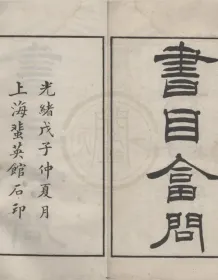 書目答問
光緒戊子仲夏月
上海蜚英館石印